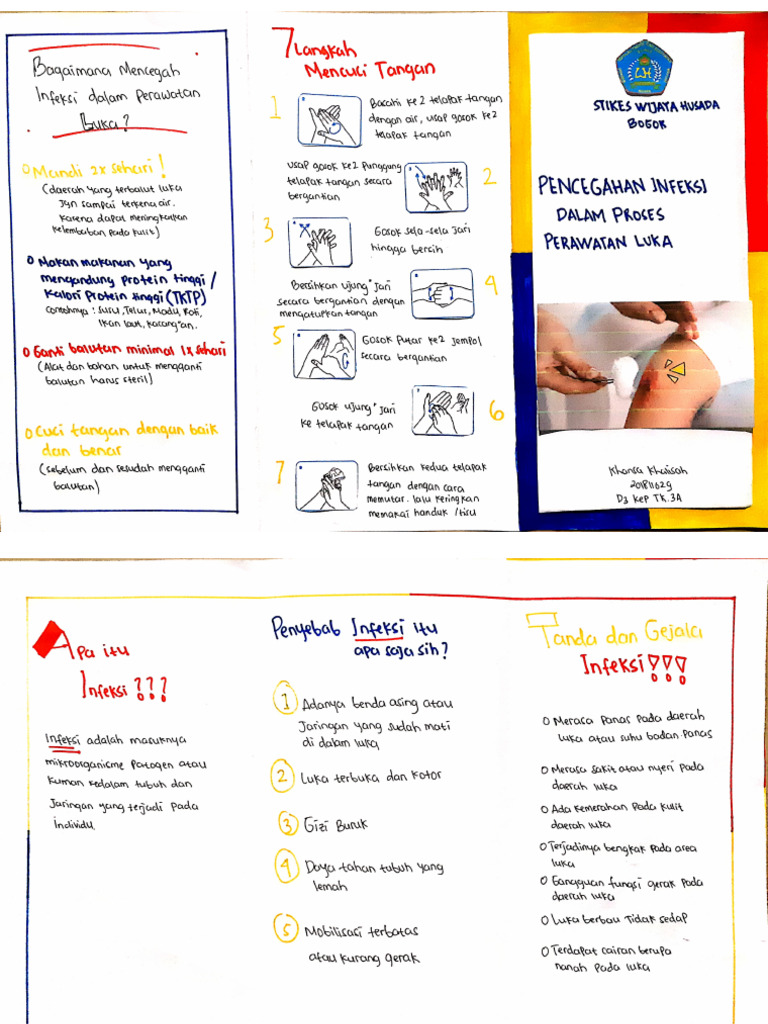 Bagaimana Mencegah
Infeksi dalam perawatan
Buka?
Mandi 2x sehari!
(daerah yang terbalut luka
Jgn sampai terkena air.
karena dapat meningkatkan
kelembaban pada kulit)
Makan makanan yang
mengandung protein tinggi /
Kalori Protein tinggi (TKTP)
Contohnya : Susu, Telur, Madu, Roti,
Ikan laut, kacang"an.
Ganti balutan minimal 1x sehari
(Alat dan bahan untuk mengganti
balutan harus steril)
Cuci tangan dengan baik
dan benar
(sebelum dan sesudah mengganti
balutan)
7 langkah
Mencuci Tangan
1
Basahi ke2 telapak tangan
dengan air, usap gosok ke2
telapak tangan
usap gosok ke2 punggung
telapak tangan secara
bergantian
2
3
Gosok sela-sela jari
hingga bersih
Bersihkan ujung" jari
secara bergantian dengan
mengatupkan tangan
4
5
Gosok Putar ke2 Jempol
secara bergantian
Gosok ujung" jari
ke telapak tangan
6
7
Bersihkan kedua telapak
tangan dengan cara
memutar. lalu keringkan
memakai handuk /tisu
STIKES WIJAYA HUSADA
BOGOR
PENCEGAHAN INFEKSI
DALAM PROSES
PERAWATAN LUKA
Khansa Khalisah
201811029
D3 Kep TK.3A
Apa itu
Infeksi ???
Infeksi adalah masuknya
mikroorganisme Patogen atau
kuman kedalam tubuh dan
Jaringan yang terjadi pada
individu.
Penyebab Infeksi itu
apa saja sih?
1 Adanya benda asing atau
Jaringan yang sudah mati
di dalam luka
2 Luka terbuka dan kotor
3 Gizi Buruk
4 Daya tahan tubuh yang
lemah
5 Mobilisasi terbatas
atau kurang gerak
Tanda dan Gejala
Infeksi !!!
Merasa panas pada daerah
luka atau suhu badan panas
Merasa sakit atau nyeri pada
daerah luka
Ada kemerahan pada kulit
daerah luka
Terjadinya bengkak pada area
luka
Gangguan fungsi gerak pada
daerah luka
Luka berbau tidak sedap
Terdapat cairan berupa
nanah pada luka